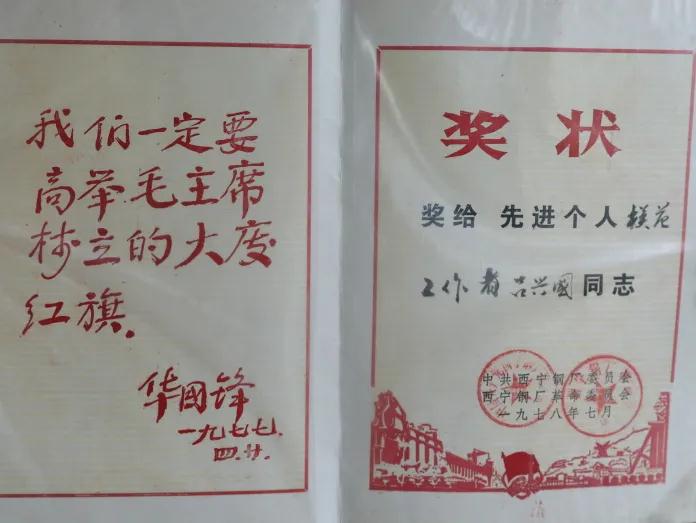 我们一定要
高举毛主席
树立的大庆
红旗.
华国锋
一九七七.
四.廿.
奖状
奖给 先进个人模范
工作者吉兴國同志
中共西宁钢厂委员会
西宁钢厂革命委员会
一九七八年七月